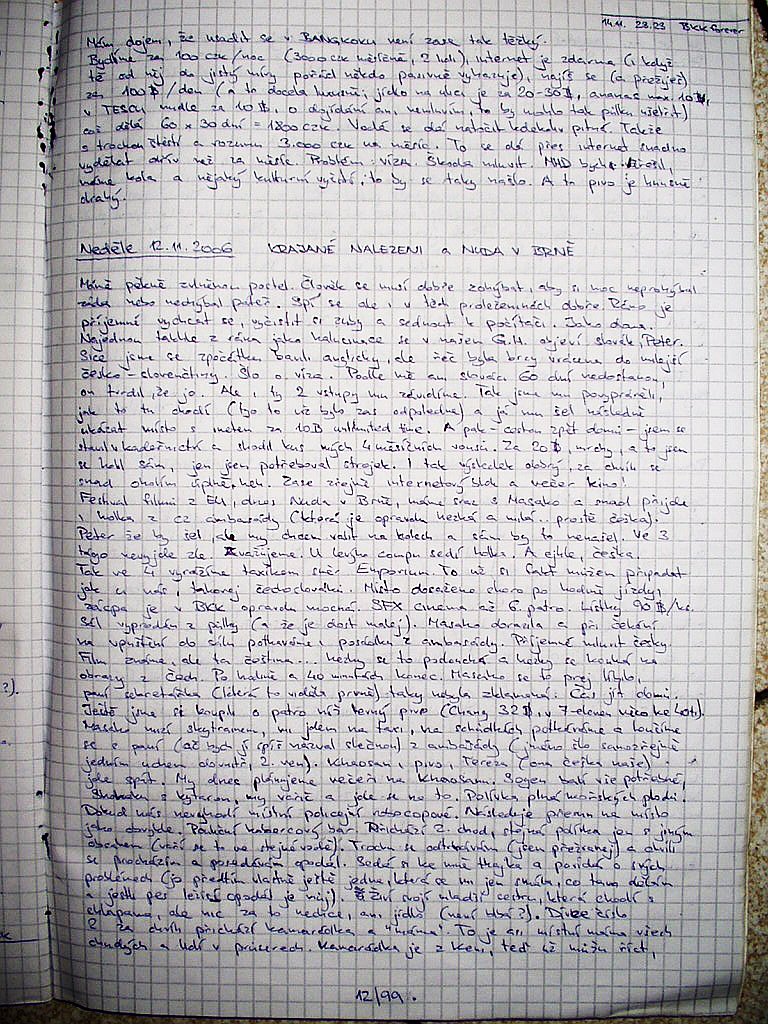 14.11. 23.23 BKK forever
Mám dojem, že usadit se v BANGKOKU není zase tak těžký.
Bydlíme za 100 CZK/noc (3000 CZK měsíčně, 2 lidi), internet je zdarma (i když
tě od něj do jistý míry pořád někdo vyhazuje), najíš se (a přežiješ)
za 100 ฿/den (a to docela luxusně, jídlo na ulici je za 20-30฿, ananas max. 10฿,
v TESCU nudle za 10 ฿, o dojídání ani nemluvím, to by mohlo tak půlku ušetřit)
což dělá 60 x 30 dní = 1800 CZK. Voda se dá natočit kdekoliv pitná. Takže
s trochou štěstí a rozumu 3.000 CZK na měsíc. To se dá přes internet snadno
vydělat dřív než za měsíc. Problém: víza. Škoda mluvit. MHD bych neřešil,
máme kola a nějaký kulturní vyžití, to by se taky našlo. A to pivo je hnusně
drahý.
Neděle 12.11.2006 KRÁJANÉ NALEZENI a NUDA V BRNĚ
Máme pěkně zničenou postel. Člověk se musí dobře zohýbat, aby si moc neprohýbal
záda nebo neohýbal páteř. Spí se ale i v těch proleženinách dobře. Ráno je
příjemné vychcat se, vyčistit si zuby a sednout k počítači. Jako doma.
Najednou takhle z rána jako halucinace se v našem G.H. objeví slovák, Peter.
Sice jsme se zpočátku bavili anglicky, ale řeč byla brzy vrácena do milejší
česko-slovenštiny. Šlo o víza. Podle mě ani slováci 60 dní nedostanou,
on tvrdil, že jo. Ale i ty 2 vstupy mu závidíme. Tak jsme mu povyprávěli,
jak to tu chodí (tjo to už bylo zas odpoledne) a já mu šel následně
ukázat místo s inetem za 10B unlimited time. A pak - cestou zpět domů - jsem se
stavil v kadeřnictví a shodil kus mých 4 měsíčních vousů. Za 20฿, mrchy, a to jsem
se holil sám, jen jsem potřeboval strojek. I tak výsledek dobrý, za chvíli se
snad oholím úplně, heh. Zase zřejmě internetový blok a večer kino!
Festival filmů z EU, dnes Nuda v Brně, máme sraz s Masako a snad přijde
i holka z CZ ambasády (která je opravdu hezká a milá.. prostě češka).
Peter že by šel, ale my chcem valit na kolech a sám by to nenašel. Ve 3
tágo nevyjde zle. Zvažujeme. U levýho compu sedí holka. A ejhle, češka.
Tak ve 4 vyrážíme taxíkem směr Emporium. To už si fakt můžem připadat
jak u nás, takovej čechoslovák. Místo dosaženo skoro po hodině jízdy,
zácpa je v BKK opravdu mocná. SFX cinema až 6. patro. Lístky 90 ฿/ks.
Sál vyprodán z půlky (a že je dost malej). Masako dorazila a při čekání
na vpuštění do sálu potkáváme i posádku z ambasády. Příjemné mluvit česky.
Film známe, ale ta čeština... hezky se to poslouchá a hezky se kouká na
obrazy z Čech. Po hodině a 40 minutách konec. Masako se to prej líbilo,
paní sekretářka (která to viděla prvně) taky nebyla zklamaná. Čas jít domů.
Ještě jsme si koupili o patro níž levný pivo (Chang 32฿, v 7-eleven
Masako mizí skytrainem, my jdem na taxi, na schůdkách potkáváme a loučíme
se s paní (až bych jí spíš nazval slečnou) z ambasády (jméno šlo samozřejmě
jedním uchem dovnitř, 2. ven). Khaosan, pivo, Tereza (ona češka naše)
jde spát. My dnes plánujeme večeři na Khaosanu. balí vše potřebné,
s kytarou, my vařič a jde se na to. Polívka plná mořských plodů.
Dokud nás nevyhodí místní policejní robocopové. Následuje přesun na místo
jako obvykle. Poduční kobercový bar. Přichází 2. chod, stejná polívka jen s jiným
obsahem (vaří se to ve stejné vodě). Trochu se odtrhávám (jsem přežranej) a chvíli
se procházím a posedávám opodál. Sedá si ke mně thajka a povídá o svých
problémech (jo předtím vlastně ještě jedna, která se mi jen smála, co tam dělám
a jestli pes ležící opodál je můj). Živí svojí mladší sestru, která chodí s
chlapama, ale nic za to nechce, ani jídlo (není blbá?). Dívce číslo
2 za chvíli přichází kamarádka a "máma". To je asi místní máma všech
chudých a lidí v průserech. Kamarádka je z Keni, teď už můžu říct,
12/99.